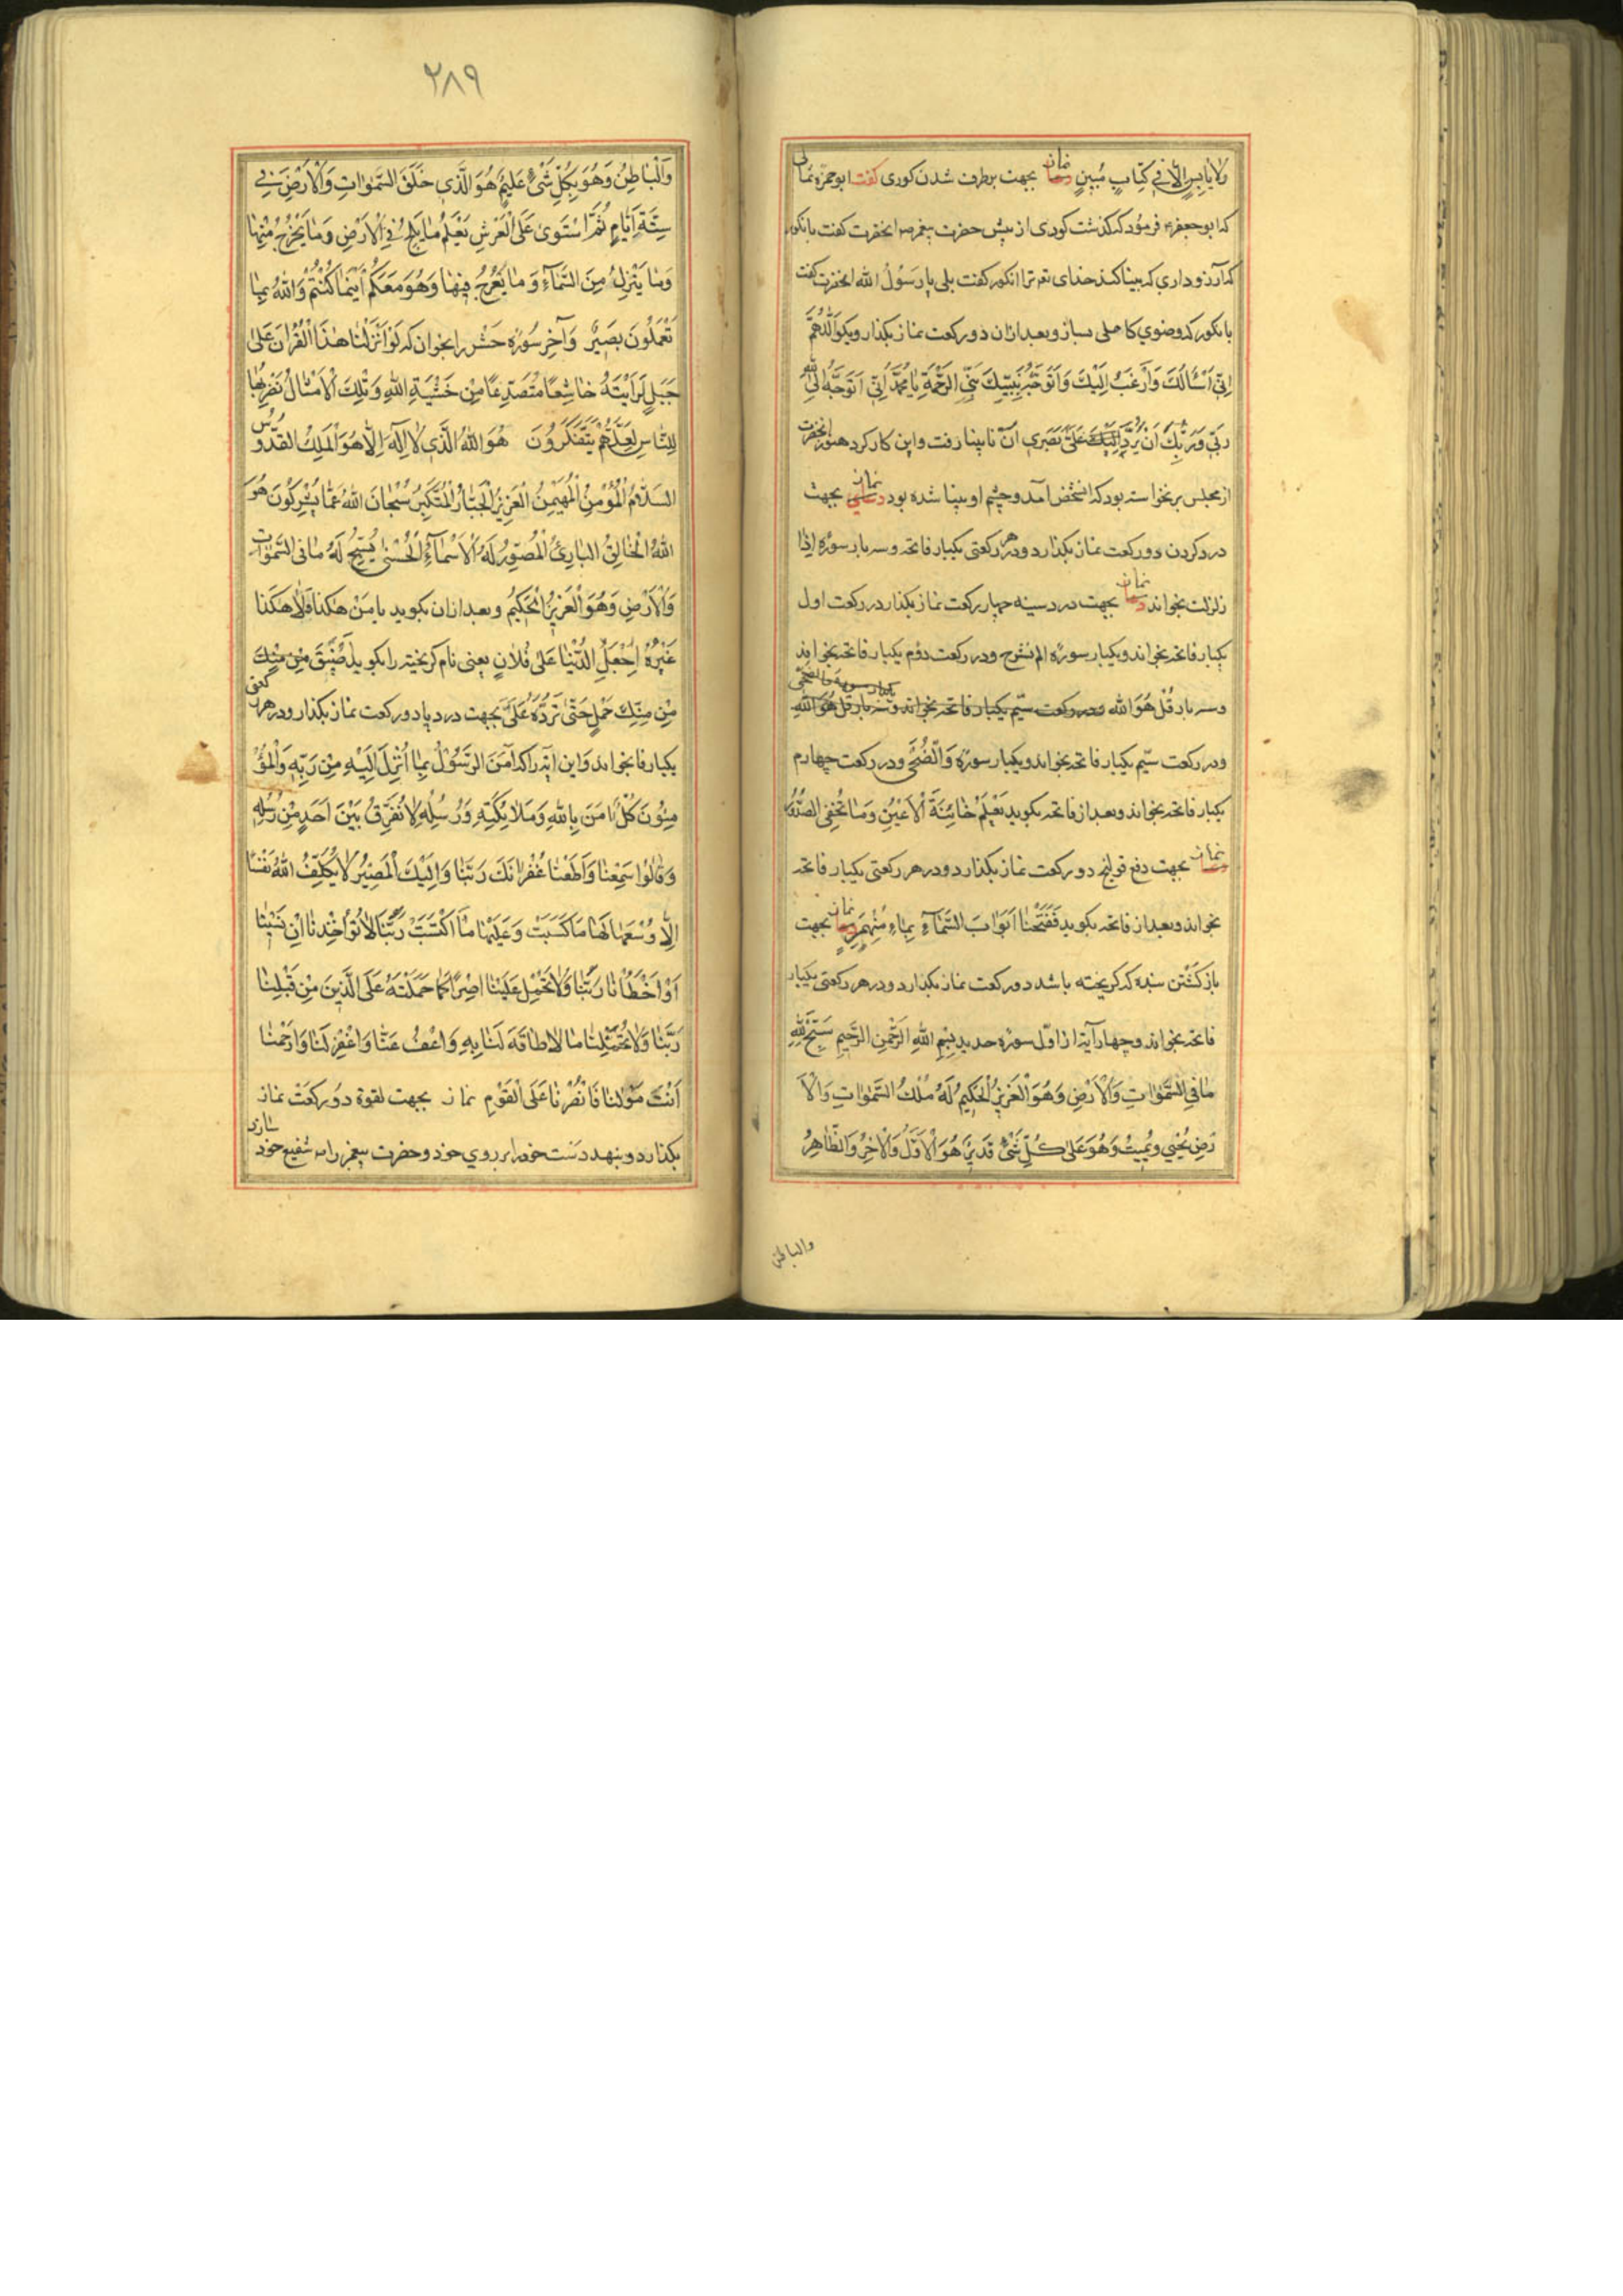 وَلاٰ يٰابِسٍ اِلاّٰ فى كِتٰابٍ مُبينٍ نماز بجهت برطرف شدن كورى گفت ابو حمزه ثمالى
كه ابو جعفر ع فرمود كه گذشت كورى از پيش حضرت پيغمبر ص انحضرت گفت بانكور
كه آرزو داري كه بينا كند خداى تعه ترا انكور گفت بلى يا رَسُولُ الله انحضرت گفت
بانكور كه وضوي كاملى بساز و بعد ازان دو ركعت نماز بگذار و بگو اَللّهُمَّ
اِنّى اَسْاَلُكَ وَاَرْغَبُ اِلَيْكَ وَاَتَوَجَّهُ بِنَبِيِّكَ نَبِىِّ الرَّحْمَةِ يٰا مُحَمَّدُ اِنّى اَتَوَجَّهُ اِلَى اللهِ
رَبّى وَرَبِّكَ اَنْ يَرُدَّ عَلَىَّ بَصَرى آن نابينا رفت و اين كار كرد هنوز انحضرت
از مجلس برنخواسته بود كه انشخص آمد و چشم او بينا شده بود نماز بجهت
درد كردن دو ركعت نماز بگذارد و در هر ركعتى يكبار فاتحه و سه بار سوره اِذٰا
زلزلت بخواند نماز بجهت درد سينه چهار ركعت نماز بگذارد در ركعت اول
يكبار فاتحه بخواند و يكبار سوره الم نشرح و در ركعت دوّم يكبار فاتحه بخواند
يكبار سوره والضحى
و سه بار قُلْ هُوَ الله و در ركعت سيّم يكبار فاتحه بخواند و سه بار قل هُوَ اللهِ
و در ركعت سيّم يكبار فاتحه بخواند و يكبار سوره وَالضُّحٰى و در ركعت چهارم
يكبار فاتحه بخواند و بعد از فاتحه بگويد يَعْلَمُ خٰائِنَةَ الْاَعْيُنِ وَمٰا تُخْفِى الصُّدُورُ
نماز بجهت دفع قولنج دو ركعت نماز بگذارد و در هر ركعتى يكبار فاتحه
بخواند و بعد از فاتحه بگويد فَفَتَحْنٰا اَبْوٰابَ السَّمٰآءِ بِمٰاءٍ مُنْهَمِرٍ نماز بجهت
باز گشتن بنده كه گريخته باشد دو ركعت نماز بگذارد و در هر ركعتى يكبار
فاتحه بخواند و چهار آية از اوّل سوره حديد بِسْمِ اللهِ الرَّحْمنِ الرَّحيمِ سَبَّحَ لِلّهِ
مٰا فِى السَّمٰوٰاتِ وَالْاَرْضِ وَهُوَ الْعَزيزُ الْحَكيمُ لَهُ مُلْكُ السَّمٰوٰاتِ وَالْاَ
رْضِ يُحْيي وَيُميتُ وَهُوَ عَلىٰ كُلِّ شَىْءٍ قَديرٌ هُوَ الْاَوَّلُ وَالْاٰخِرُ وَالظّٰاهِرُ
والباطن
٢٨٩
وَالْبٰاطِنُ وَهُوَ بِكُلِّ شَىْءٍ عَليمٌ هُوَ الَّذى خَلَقَ السَّمٰوٰاتِ وَالْاَرْضَ فى
سِتَّةِ اَيّٰامٍ ثُمَّ اسْتَوىٰ عَلَى الْعَرْشِ يَعْلَمُ مٰا يَلِجُ فِى الْاَرْضِ وَمٰا يَخْرُجُ مِنْهٰا
وَمٰا يَنْزِلُ مِنَ السَّمٰآءِ وَمٰا يَعْرُجُ فيهٰا وَهُوَ مَعَكُمْ اَيْنَمٰا كُنْتُمْ وَاللهُ بِمٰا
تَعْمَلُونَ بَصيرٌ وَآخر سُوره حَشْر را بخوان كه لَوْ اَنْزَلْنٰا هٰذَا الْقُرْاٰنَ عَلىٰ
جَبَلٍ لَرَاَيْتَهُ خٰاشِعًا مُتَصَدِّعًا مِنْ خَشْيَةِ اللهِ وَتِلْكَ الْاَمْثٰالُ نَضْرِبُهٰا
لِلنّٰاسِ لَعَلَّهُمْ يَتَفَكَّرُونَ هُوَ اللهُ الَّذى لاٰ اِلٰهَ اِلاّٰ هُوَ الْمَلِكُ القُدُّوسُ
السَّلاٰمُ الْمُؤْمِنُ الْمُهَيْمِنُ الْعَزيزُ الْجَبّٰارُ الْمُتَكَبِّرُ سُبْحٰانَ اللهِ عَمّٰا يُشْرِكُونَ هُوَ
اللهُ الْخٰالِقُ البٰارِئُ الْمُصَوِّرُ لَهُ الْاَسْمٰآءُ الْحُسْنىٰ يُسَبِّحُ لَهُ مٰا فى السَّمٰوٰاتِ
وَالْاَرْضِ وَهُوَ الْعَزيزُ الْحَكيمُ و بعد ازان بگويد يا مَنْ هٰكَذٰا وَلاٰ هٰكَذٰا
غَيْرُهُ اِجْعَلِ الدُّنْيٰا عَلىٰ فُلاٰنٍ يعنى نام گريخته را بگويد اَضْيَقَ مِنْ مَسْكِ
مِنْ مَسْكِ حَمَلٍ حَتّىٰ تَرُدَّهُ عَلَىَّ بجهت درد پا دو ركعت نماز بگذارد و در هر ركعتى
يكبار فا بخواند وَاين ايَه را كه اٰمَنَ الرَّسُولُ بِمٰا اُنْزِلَ اِلَيْهِ مِنْ رَبِّه وَالْمُؤْ
مِنُونَ كُلٌّ اٰمَنَ بِاللهِ وَمَلاٰئِكَتِهِ وَرُسُلِهِ لاٰ نُفَرِّقُ بَيْنَ اَحَدٍ مِنْ رُسُلِهِ
وَقٰالُوا سَمِعْنٰا وَاَطَعْنٰا غُفْرٰانَكَ رَبَّنٰا وَاِلَيْكَ الْمَصيرُ لاٰ يُكَلِّفُ اللهُ نَفْسًا
اِلاّٰ وُسْعَهٰا لَهٰا مٰا كَسَبَتْ وَعَلَيْهٰا مٰا اكْتَسَبَتْ رَبَّنٰا لاٰ تُؤٰاخِذْنٰا اِنْ نَسينٰا
اَوْ اَخْطَاْنٰا رَبَّنٰا وَلاٰ تَحْمِلْ عَلَيْنٰا اِصْرًا كَمٰا حَمَلْتَهُ عَلَى الَّذينَ مِنْ قَبْلِنٰا
رَبَّنٰا وَلاٰ تُحَمِّلْنٰا مٰا لاٰ طٰاقَةَ لَنٰا بِهِ وَاعْفُ عَنّٰا وَاغْفِرْ لَنٰا وَارْحَمْنٰا
اَنْتَ مَوْلٰنٰا فَانْصُرْنٰا عَلَى الْقَوْمِ نماز بجهت لقوة دو ركعت نماز
بگذارد و بنهد دست خود را بر روي خود و حضرت پيغمبر را ص شفيع خود سازد